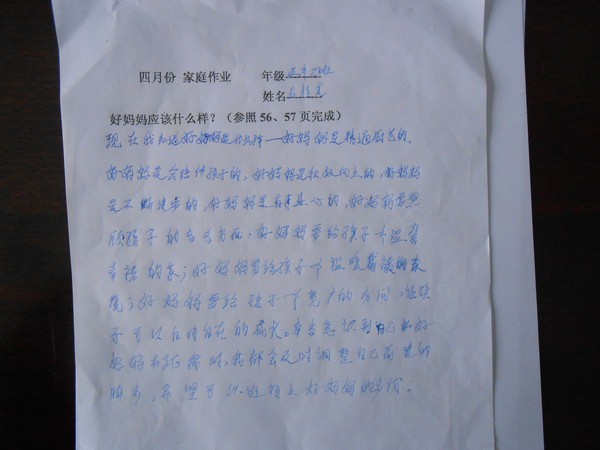 四月份 家庭作业 年级
姓名
好妈妈应该什么样？（参照56、57页完成）
现在我知道好妈妈是什么样——好妈妈是精通厨艺的、
好妈妈是会陪伴孩子的，好妈妈是积极向上的，好妈妈
是不断进步的，好妈妈是有事业心的，好妈妈要照
顾孩子的各个方面，好妈妈要给孩子一个温馨
幸福的家；好妈妈要给孩子一个温暖和谐的家
庭；好妈妈要给孩子一个宽广的房间，让孩
子可以自由自在的成长。每当意识到自己和好
妈妈有距离时，我都会及时调整自己前进的
脚步，希望可以追赶上好妈妈的步伐。